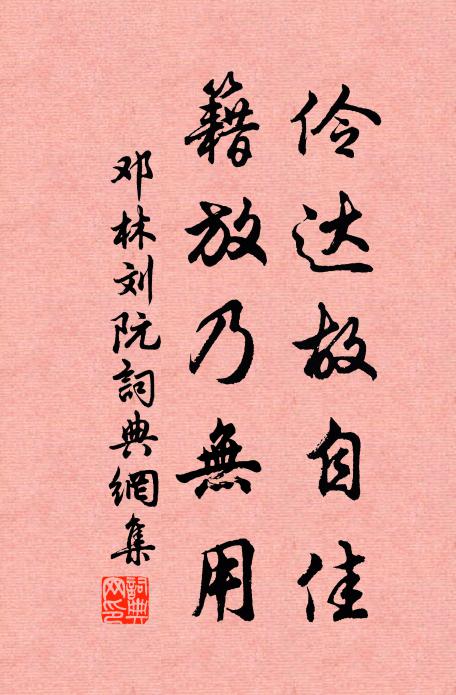 伶达故自佳
籍放乃無用
邓林刘阮詞典網集
詞典網印